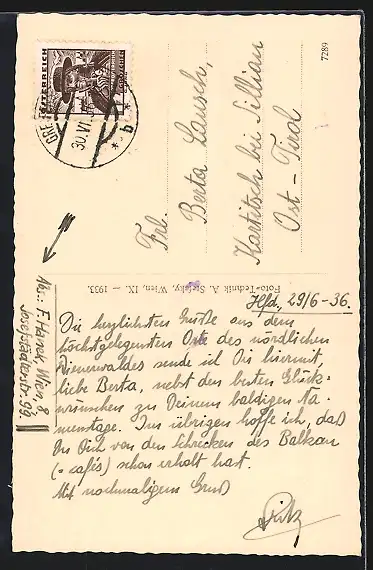 ÖSTERREICH
GRE
30.VI.3
* b *
7289
Frl.
Berta Lausch,
Kartitsch bei Sillian
Ost-Tirol
Foto-Technik A. Stefsky, Wien, IX. — 1933.
Abs.: F. Hanek, Wien, 8
Josefstädterstr. 99
Hfd., 29/6-36.
Die herzlichsten Grüße aus dem
höchstgelegensten Orte des nördlichen
Wienerwaldes sende ich Dir hiermit,
liebe Berta, nebst den besten Glück-
wünschen zu Deinem baldigen Na-
menstage. Im übrigen hoffe ich, daß
Du Dich von den Schrecken des Balkan
(= cafés) schon erholt hast.
Mit nochmaligem Gruß
Fritz